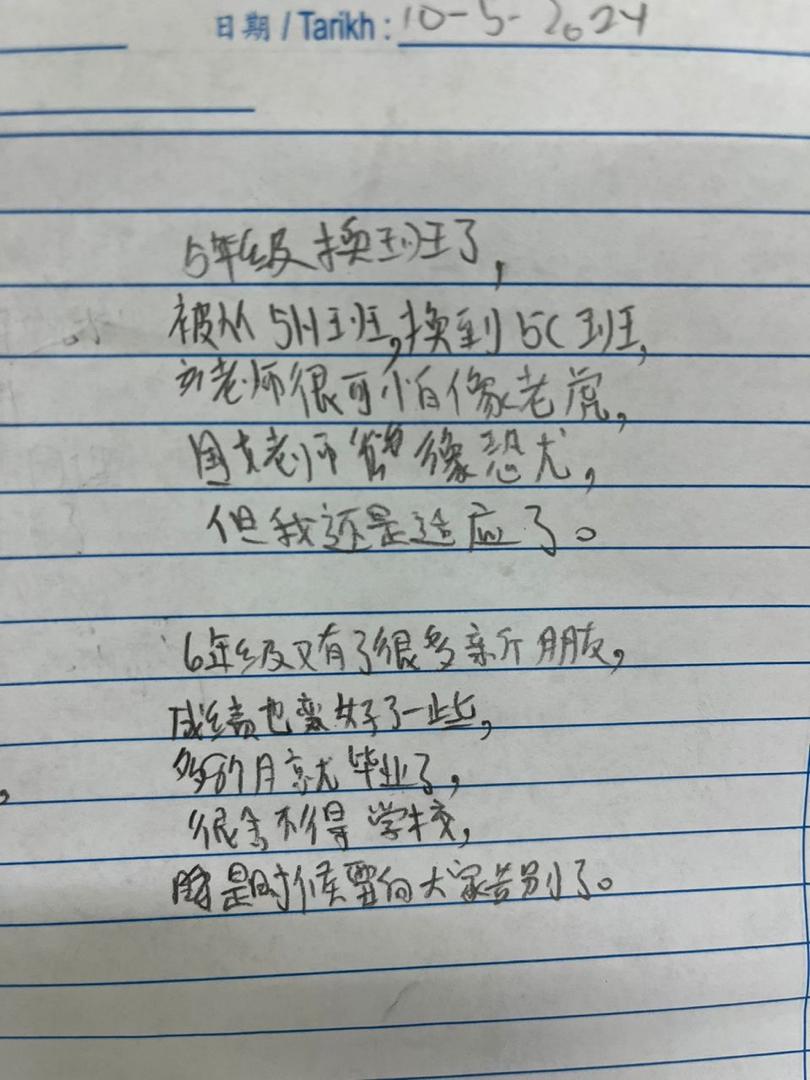 日期 / Tarikh : 10-5-2024
5年级换班了,
被从5H班,换到5C班,
老师很可怕像老虎,
国文老师像恐龙,
但我还是适应了。
6年级又有了很多新朋友,
成绩也变好了一些,
多6个月就毕业了,
很舍不得学校,
是时候要向大家告别了。